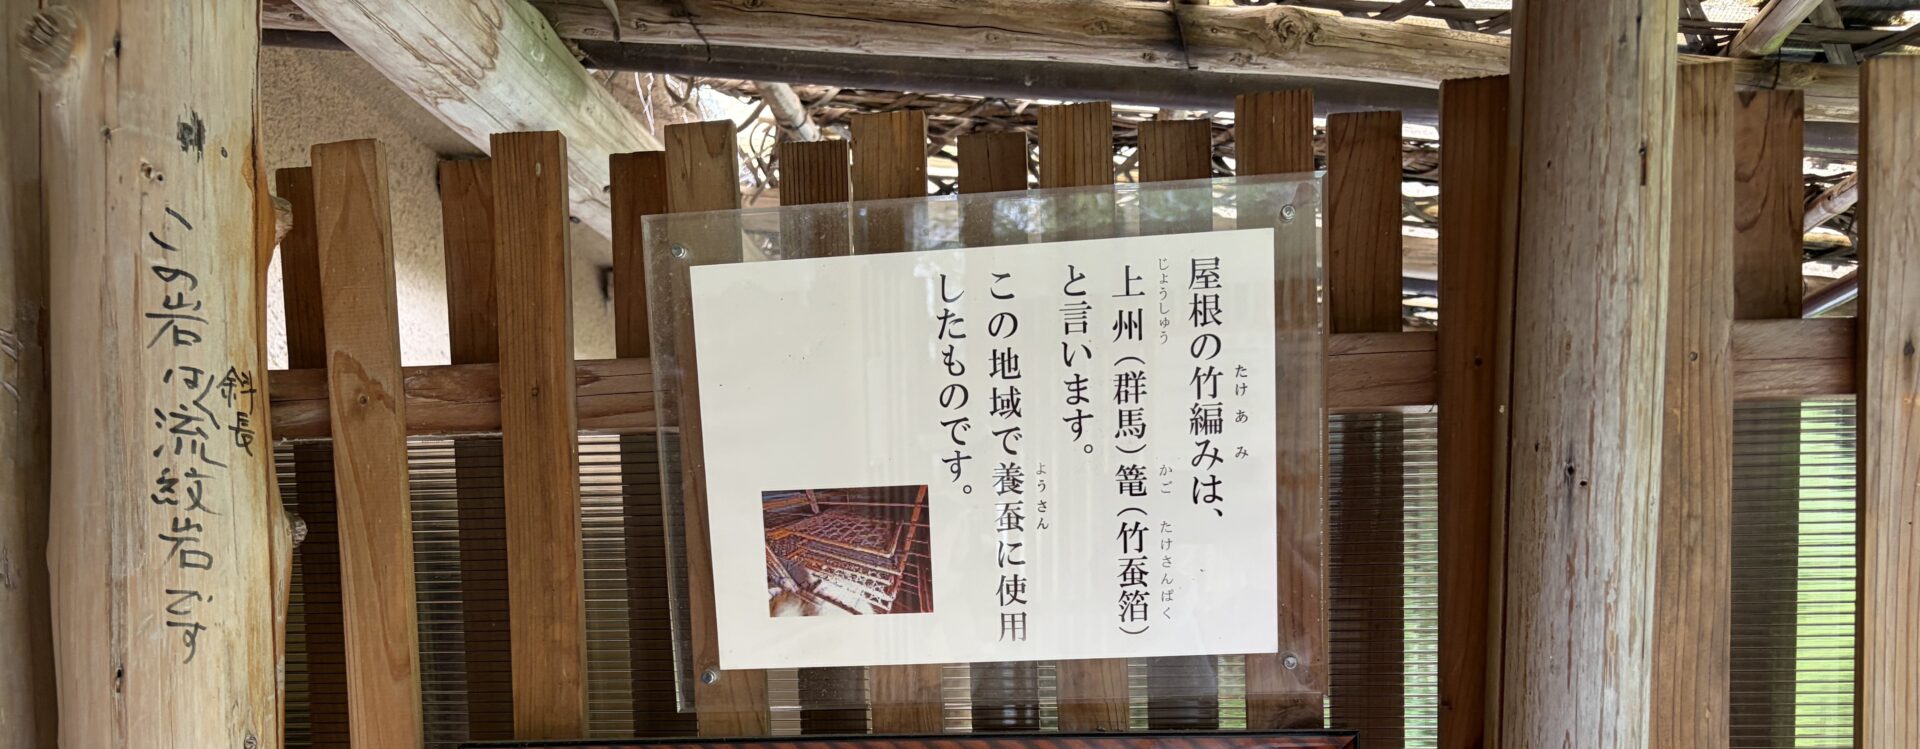 屋根の竹編みは、
たけあみ
上州(群馬)篭(竹蚕箔)
じょうしゅう かご たけさんぱく
と言います。
この地域で養蚕に使用
ようさん
したものです。
この岩は流紋岩です
斜長